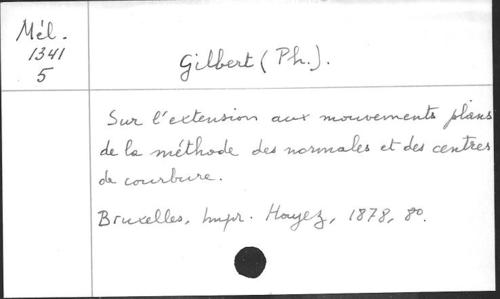 Mél.
1341
5
Gilbert (Ph.).
Sur l'extension aux mouvements plans
de la méthode des normales et des centres
de courbure.
Bruxelles, Impr. Hayez, 1878, 8o.